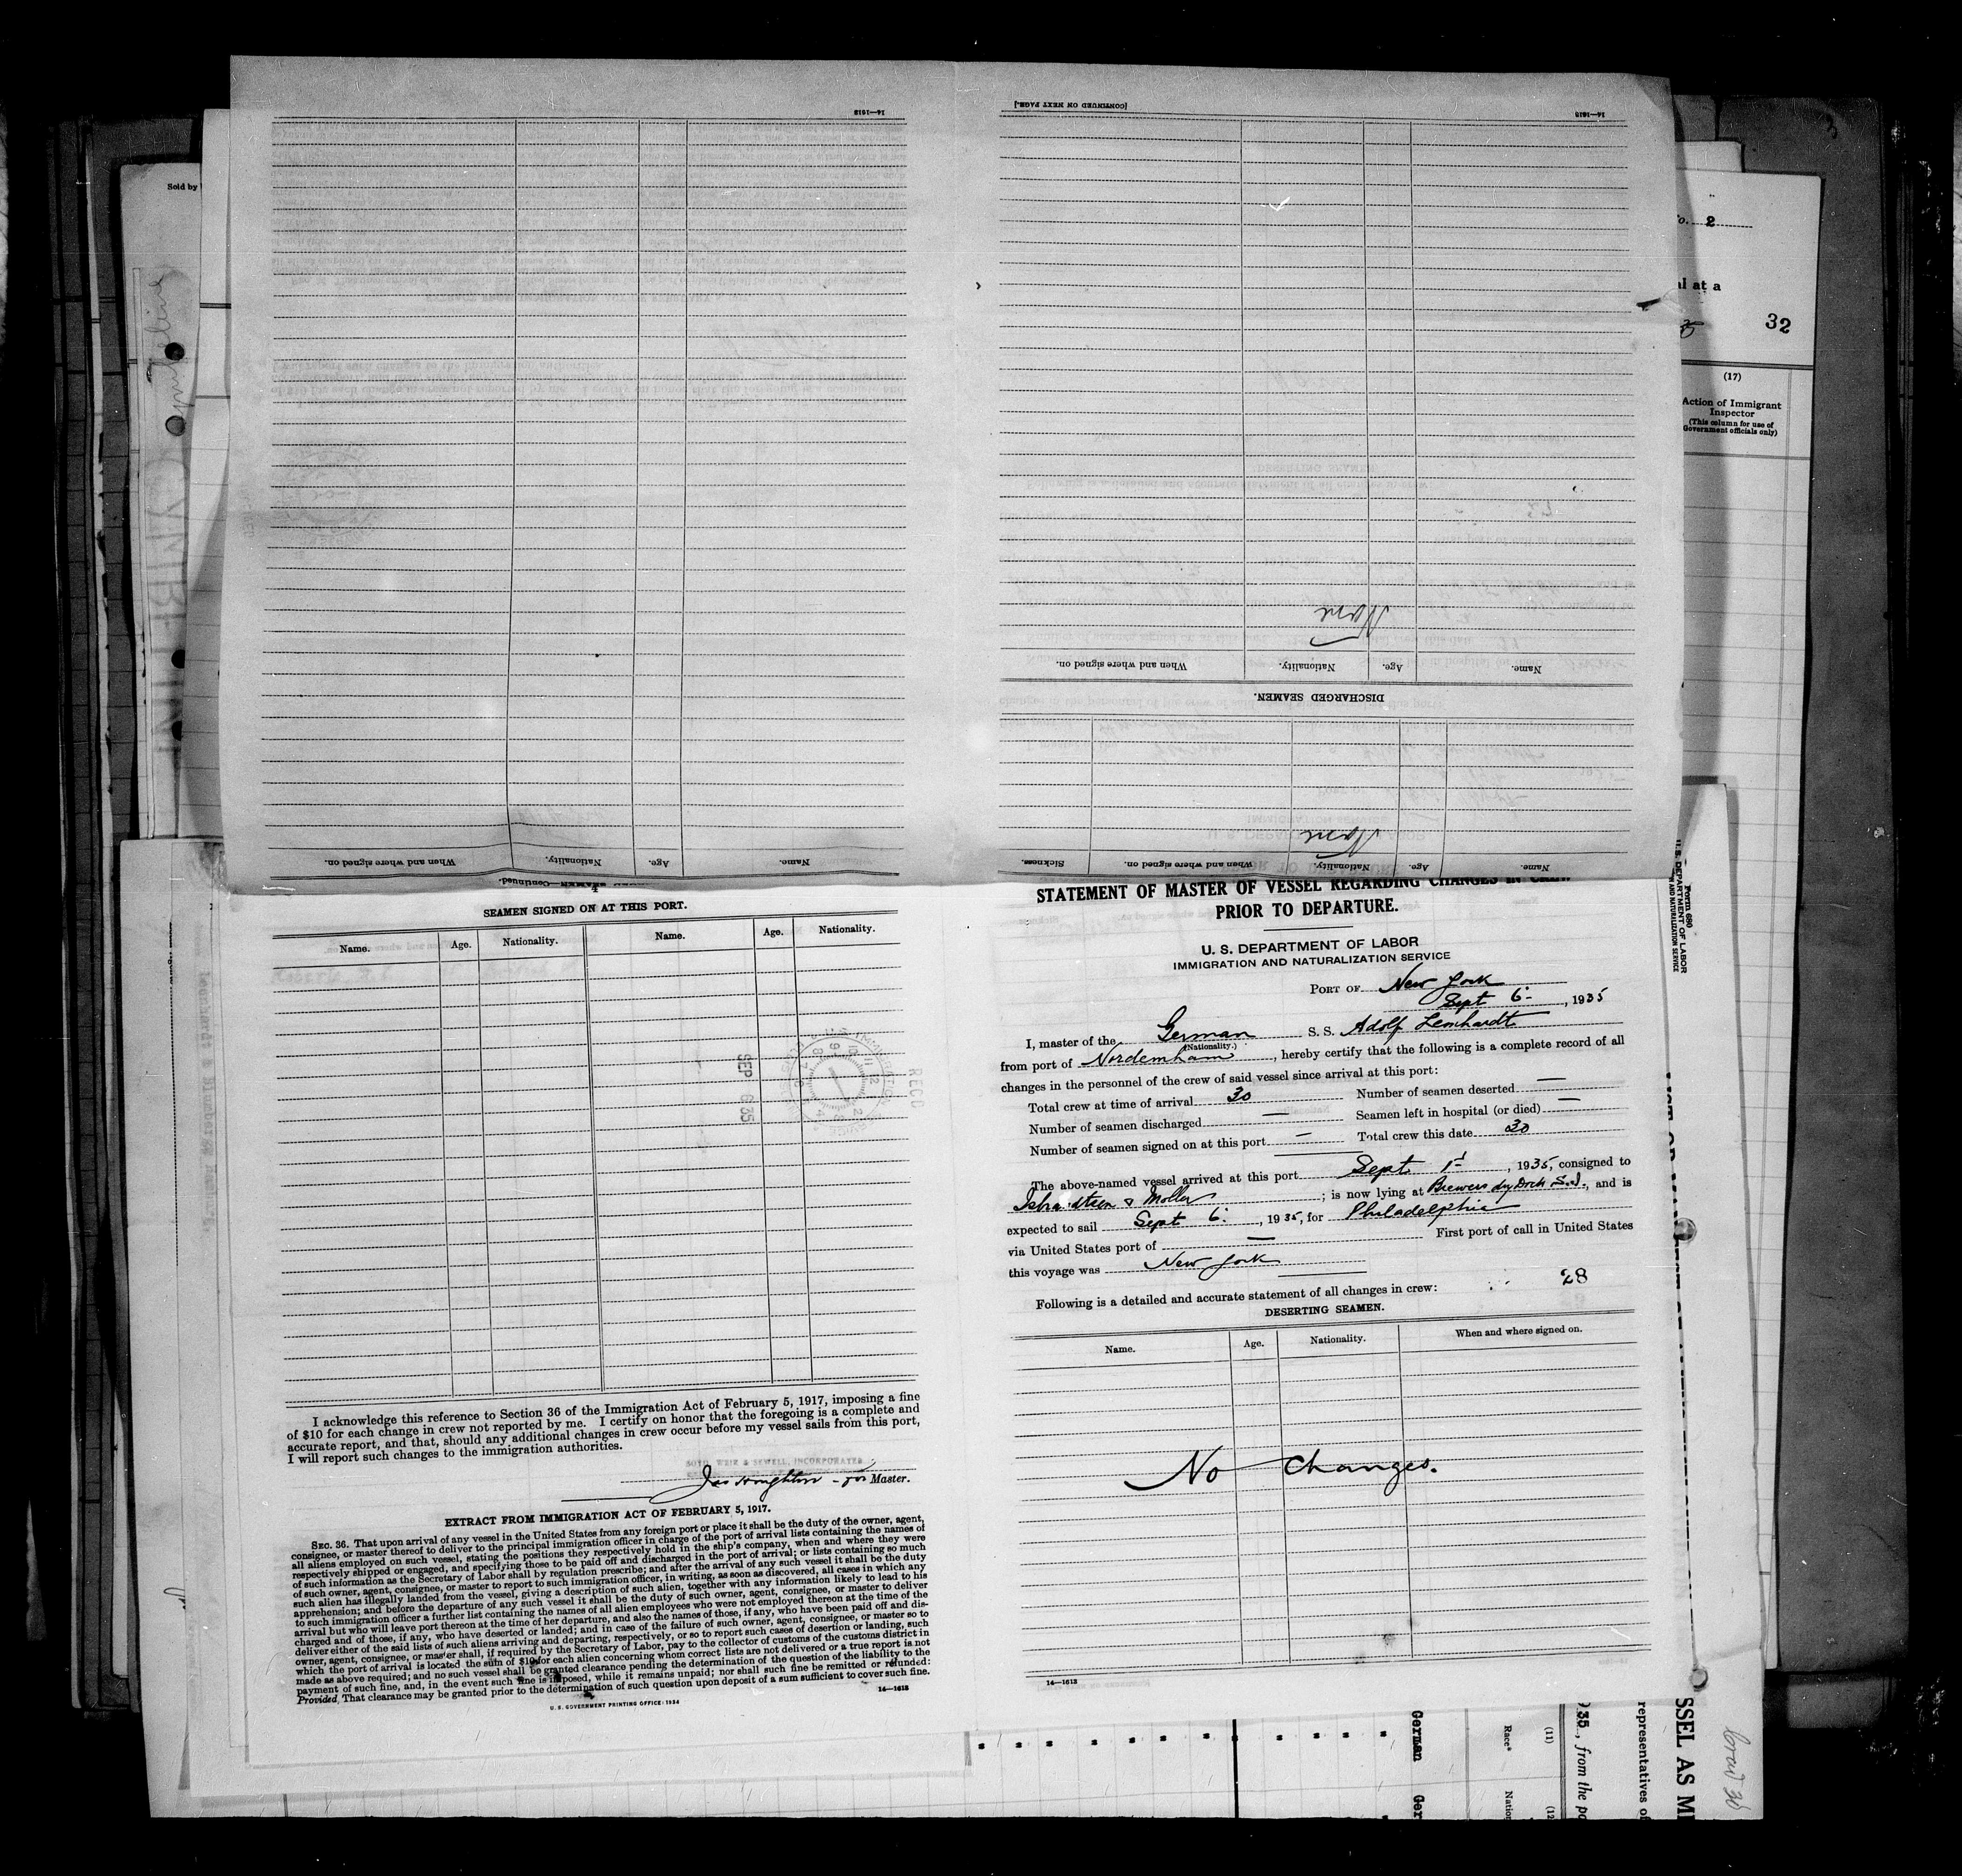 14—1613
[CONTINUED ON NEXT PAGE.]
14—1613
Sold by
o. 2
al at a
32
(17)
Action of Immigrant
Inspector
(This column for use of
Government officials only)
None
Name. Age. Nationality. When and where signed on.
DISCHARGED SEAMEN.
None
Name. Age. Nationality. When and where signed on. Sickness.
Name. Age. Nationality. When and where signed on.
SEAMEN—Continued.
SEAMEN SIGNED ON AT THIS PORT.
Name. Age. Nationality. Name. Age. Nationality.
RECD
IMMIGRATION
SEP 6 35
I acknowledge this reference to Section 36 of the Immigration Act of February 5, 1917, imposing a fine
of $10 for each change in crew not reported by me. I certify on honor that the foregoing is a complete and
accurate report, and that, should any additional changes in crew occur before my vessel sails from this port,
I will report such changes to the immigration authorities.
WEIR & SEWELL, INCORPORATED
Jas Houghton - for Master.
EXTRACT FROM IMMIGRATION ACT OF FEBRUARY 5, 1917.
SEC. 36. That upon arrival of any vessel in the United States from any foreign port or place it shall be the duty of the owner, agent,
consignee, or master thereof to deliver to the principal immigration officer in charge of the port of arrival lists containing the names of
all aliens employed on such vessel, stating the positions they respectively hold in the ship's company, when and where they were
respectively shipped or engaged, and specifying those to be paid off and discharged in the port of arrival; or lists containing so much
of such information as the Secretary of Labor shall by regulation prescribe; and after the arrival of any such vessel it shall be the duty
of such owner, agent, consignee, or master to report to such immigration officer, in writing, as soon as discovered, all cases in which any
such alien has illegally landed from the vessel, giving a description of such alien, together with any information likely to lead to his
apprehension; and before the departure of any such vessel it shall be the duty of such owner, agent, consignee, or master to deliver
to such immigration officer a further list containing the names of all alien employees who were not employed thereon at the time of the
arrival but who will leave port thereon at the time of her departure, and also the names of those, if any, who have been paid off and dis-
charged and of those, if any, who have deserted or landed; and in case of the failure of such owner, agent, consignee, or master so to
deliver either of the said lists of such aliens arriving and departing, respectively, or so to report such cases of desertion or landing, such
owner, agent, consignee, or master shall, if required by the Secretary of Labor, pay to the collector of customs of the customs district in
which the port of arrival is located the sum of $10 for each alien concerning whom correct lists are not delivered or a true report is not
made as above required; and no such vessel shall be granted clearance pending the determination of the question of the liability to the
payment of such fine, and, in the event such fine is imposed, while it remains unpaid; nor shall such fine be remitted or refunded:
Provided, That clearance may be granted prior to the determination of such question upon deposit of a sum sufficient to cover such fine.
14—1613
U. S. GOVERNMENT PRINTING OFFICE: 1934
STATEMENT OF MASTER OF VESSEL REGARDING CHANGES IN CREW
PRIOR TO DEPARTURE.
U. S. DEPARTMENT OF LABOR
IMMIGRATION AND NATURALIZATION SERVICE
PORT OF New York
Sept 6, 1935
I, master of the German S. S. Adolf Leonhardt
(Nationality.)
from port of Nordenham, hereby certify that the following is a complete record of all
changes in the personnel of the crew of said vessel since arrival at this port:
Total crew at time of arrival 30 Number of seamen deserted —
Number of seamen discharged — Seamen left in hospital (or died) —
Number of seamen signed on at this port — Total crew this date 30
The above-named vessel arrived at this port Sept 1st, 1935, consigned to
Isbrandtsen & Moller; is now lying at Brewers dry Dock S.I., and is
expected to sail Sept 6, 1935, for Philadelphia
via United States port of — First port of call in United States
this voyage was New York
28
Following is a detailed and accurate statement of all changes in crew:
DESERTING SEAMEN.
Name. Age. Nationality. When and where signed on.
No changes.
14—1613
Form 680
U. S. DEPARTMENT OF LABOR
AND NATURALIZATION SERVICE
German
Ger
Race*
(11)
Nation
(12
35, from the po
representatives of
SSEL AS M